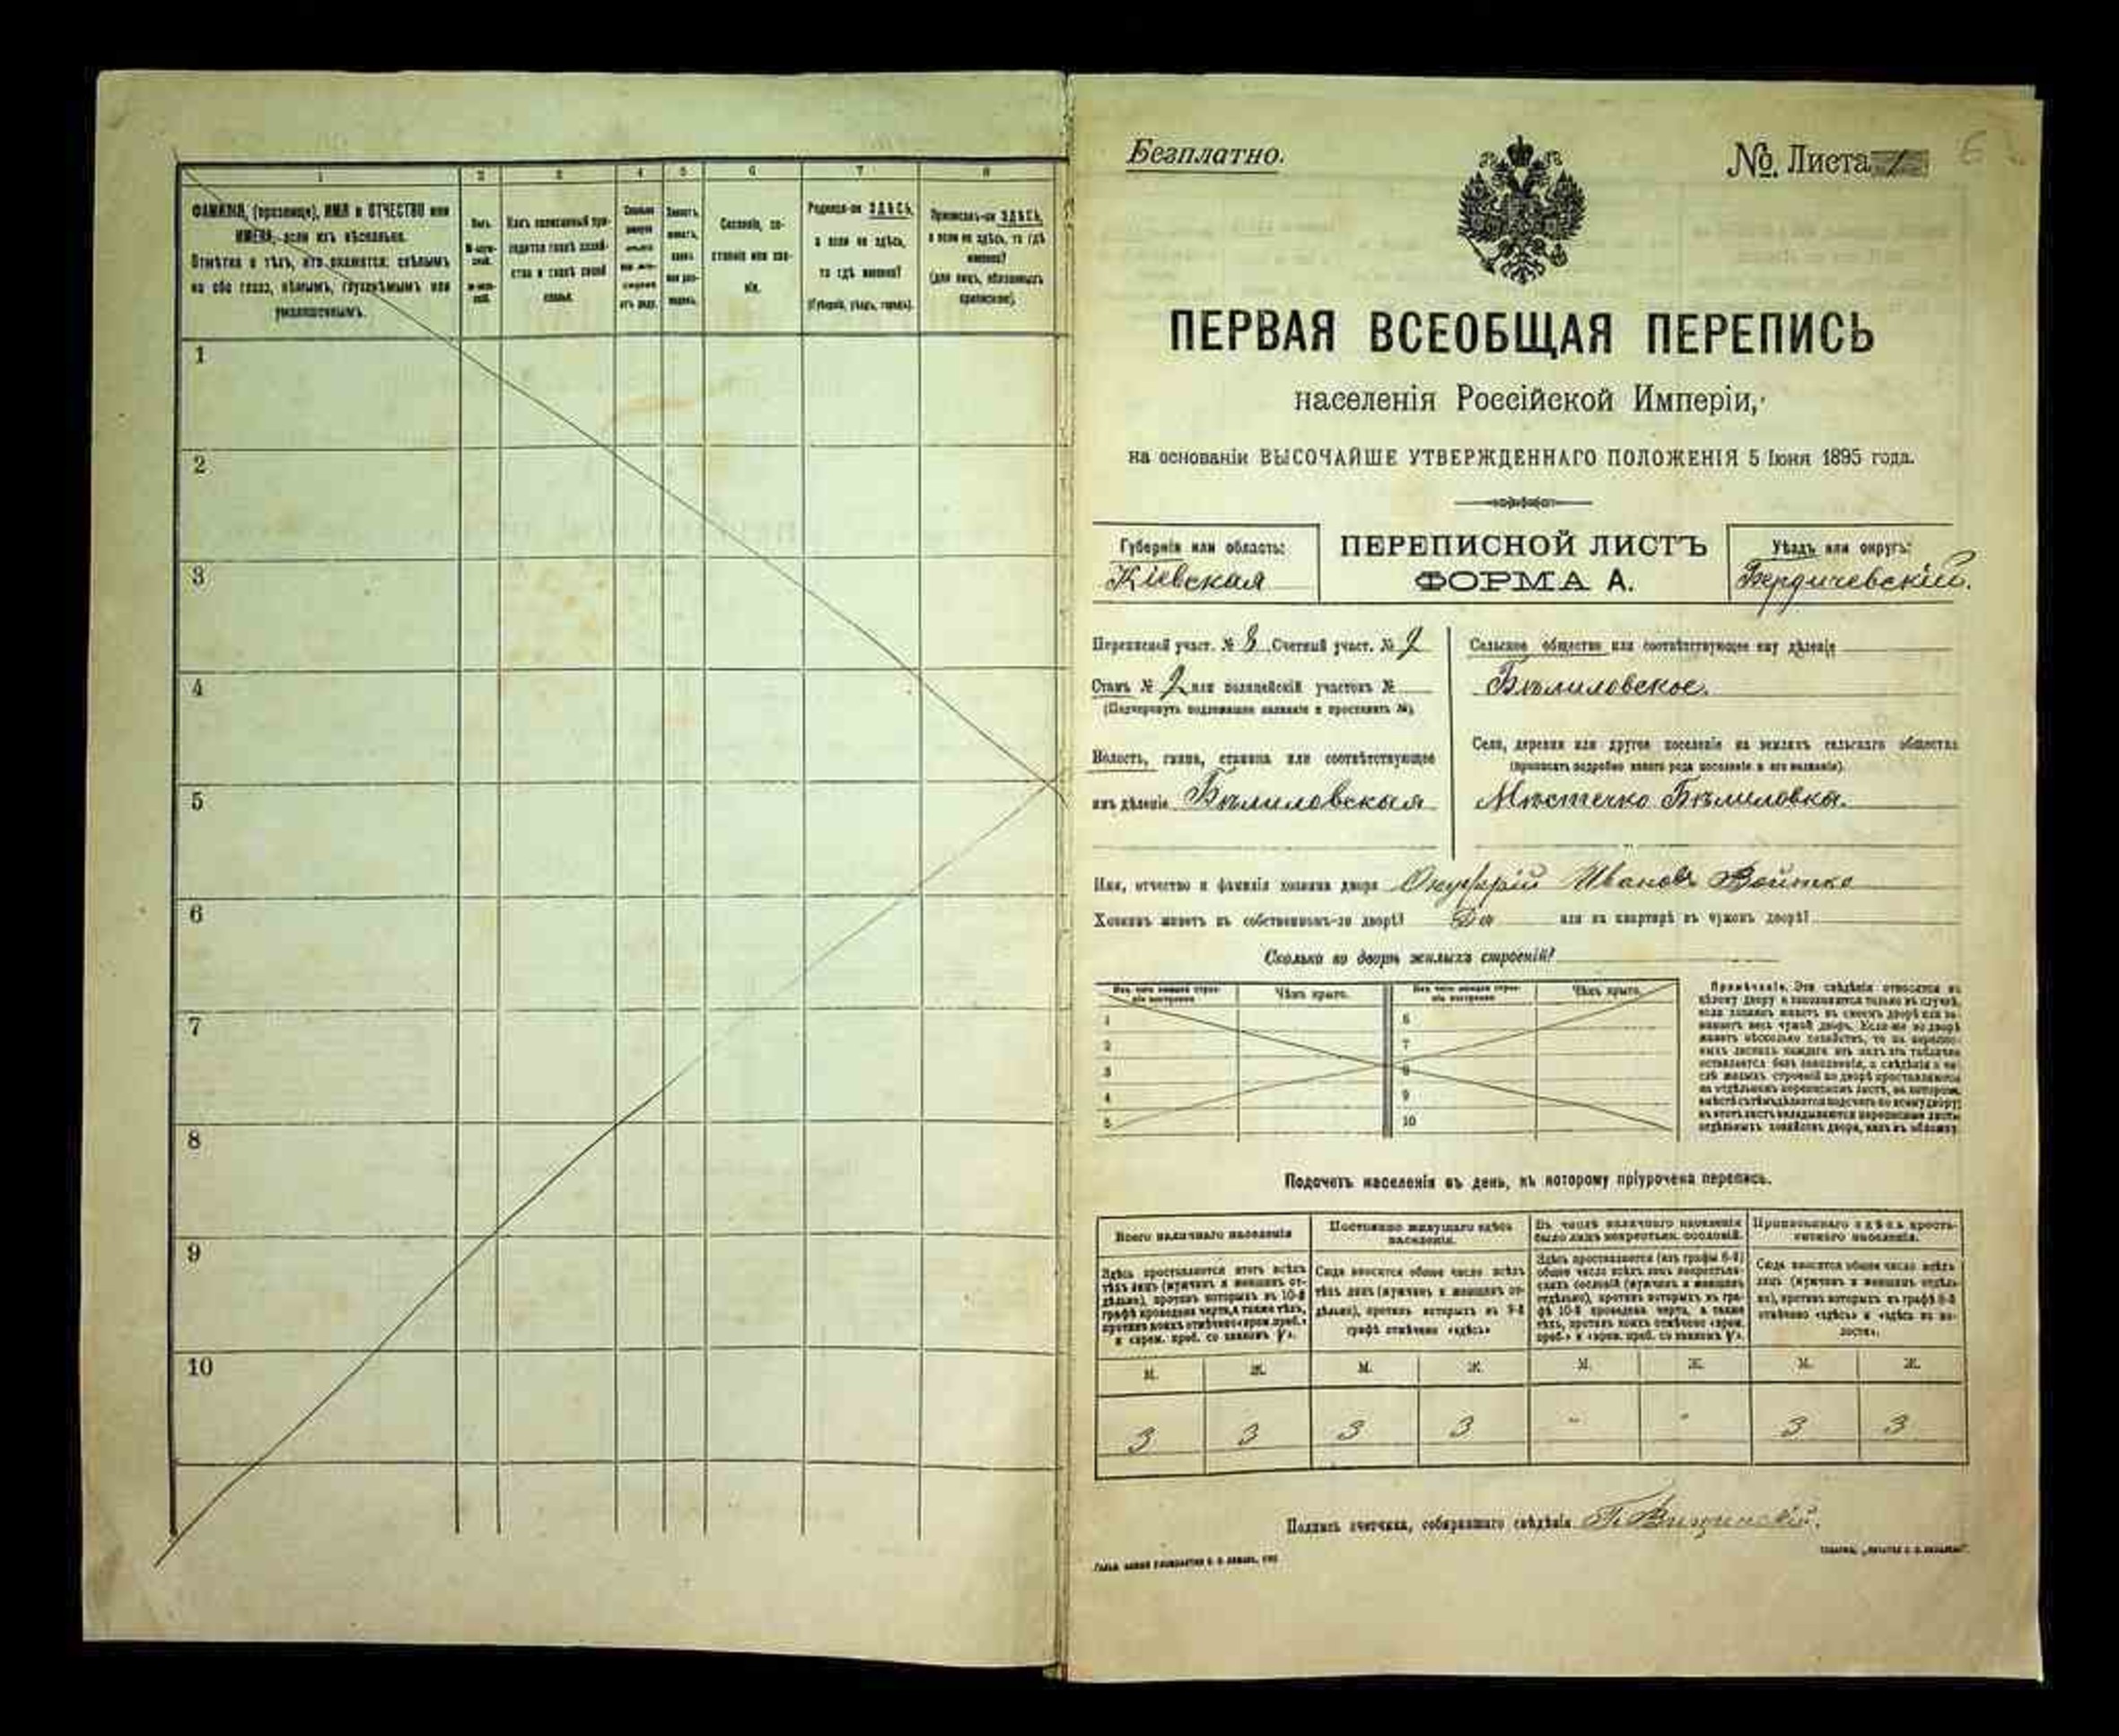 1 2 3 4 5 6 7 8
ФАМИЛІЯ, (прозвище), ИМЯ и ОТЧЕСТВО или
ИМЕНА, если ихъ нѣсколько.
Отмѣтка о тѣхъ, кто окажется: слѣпымъ
на оба глаза, нѣмымъ, глухонѣмымъ или
умалишеннымъ.
Полъ.
Какъ записанный при-
ходится главѣ хозяй-
ства и главѣ своей
семьи.
Сословіе, со-
стояніе или зва-
ніе.
Родился-ли ЗДѢСЬ,
а если не здѣсь,
то гдѣ именно?
(Губернія, уѣздъ, городъ).
Приписанъ-ли ЗДѢСЬ,
а если не здѣсь, то гдѣ
именно?
(для лицъ, обязанныхъ
припискою).
1
2
3
4
5
6
7
8
9
10
Безплатно.
№ Листа 1
ПЕРВАЯ ВСЕОБЩАЯ ПЕРЕПИСЬ
населенія Россійской Имперіи,
на основаніи ВЫСОЧАЙШЕ УТВЕРЖДЕННАГО ПОЛОЖЕНІЯ 5 Іюня 1895 года.
Губернія или область:
Кіевская
ПЕРЕПИСНОЙ ЛИСТЪ
ФОРМА А.
Уѣздъ или округъ:
Бердичевскій.
Переписной участ. № 8 Счетный участ. № 2
Станъ № 2 или полицейскій участокъ №
(Подчеркнуть подлежащее названіе и проставить №).
Волость, гмина, станица или соотвѣтствующее
имъ дѣленіе Бѣлиловская
Сельское общество или соотвѣтствующее ему дѣленіе
Бѣлиловское.
Село, деревня или другое поселеніе на земляхъ сельскаго общества
(прописать подробно какого рода поселеніе и его названіе).
Мѣстечко Бѣлиловка.
Имя, отчество и фамилія хозяина двора Онуфрій Ивановъ Войтко
Хозяинъ живетъ въ собственномъ-ли дворѣ? Да или на квартирѣ въ чужомъ дворѣ?
Сколько во дворѣ жилыхъ строеній?
Изъ чего жилыя строе-
нія построены
Чѣмъ крыто.
Изъ чего жилыя строе-
нія построены
Чѣмъ крыто.
1 6
2 7
3 8
4 9
5 10
Примѣчаніе. Эти свѣдѣнія относятся къ
цѣлому двору и заполняются только въ случаѣ,
если хозяинъ живетъ въ своемъ дворѣ или за-
нимаетъ весь чужой дворъ. Если-же во дворѣ
живетъ нѣсколько хозяйствъ, то на перепис-
ныхъ листахъ каждаго изъ нихъ эта табличка
оставляется безъ заполненія, а свѣдѣнія о чи-
слѣ жилыхъ строеній во дворѣ проставляются
на отдѣльномъ переписномъ листѣ, на которомъ
вмѣстѣ съ тѣмъ дѣлается подсчетъ по всему двору;
въ этотъ листъ вкладываются переписные листы
отдѣльныхъ хозяйствъ двора, какъ въ обложку.
Подсчетъ населенія въ день, къ которому пріурочена перепись.
Всего наличнаго населенія
Здѣсь проставляется итогъ всѣхъ
тѣхъ лицъ (мужчинъ и женщинъ от-
дѣльно), противъ которыхъ въ 10-й
графѣ проведена черта, а также тѣхъ,
противъ коихъ отмѣчено «врем. преб.»
и «врем. преб. со знакомъ V».
Постоянно живущаго здѣсь
населенія.
Сюда вносится общее число всѣхъ
тѣхъ лицъ (мужчинъ и женщинъ от-
дѣльно), противъ которыхъ въ 9-й
графѣ отмѣчено «здѣсь»
Въ числѣ наличнаго населенія
было лицъ некрестьян. сословій.
Здѣсь проставляется (изъ графы 6-й)
общее число всѣхъ лицъ некрестьян-
скихъ сословій (мужчинъ и женщинъ
отдѣльно), противъ которыхъ въ гра-
фѣ 10-й проведена черта, а также
тѣхъ, противъ коихъ отмѣчено «врем.
преб.» и «врем. преб. со знакомъ V».
Приписаннаго здѣсь кресть-
янскаго населенія.
Сюда вносится общее число всѣхъ
лицъ (мужчинъ и женщинъ отдѣль-
но), противъ которыхъ въ графѣ 8-й
отмѣчено «здѣсь» и «здѣсь въ во-
лости».
М. Ж. М. Ж. М. Ж. М. Ж.
3 3 3 3 - - 3 3
Подпись счетчика, собиравшаго свѣдѣнія